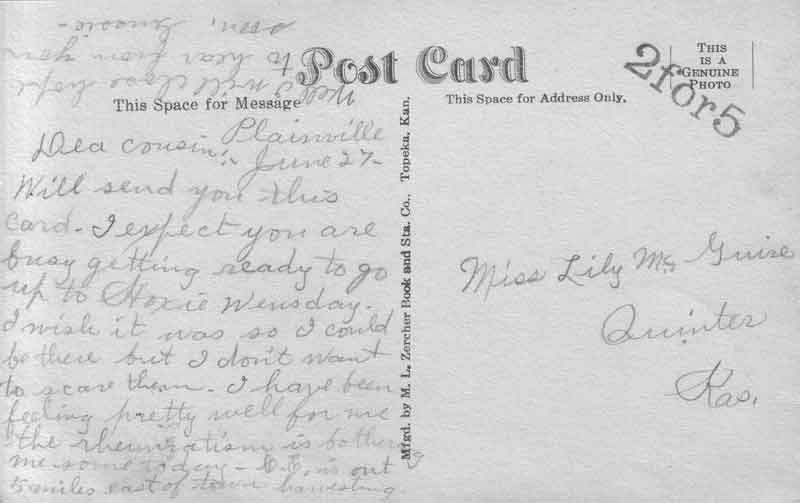 Post Card
This Space for Message
This Space for Address Only.
THIS
IS A
GENUINE
PHOTO
2for5
Mfgd. by M. L. Zercher Book and Sta. Co., Topeka, Kan.
Plainville
June 27-
Dea cousin:-
Will send you this
card. I expect you are
busy getting ready to go
up to Hoxie Wensday.
I wish it was so I could
be there but I don't want
to scare them. I have been
feeling pretty well for me
the rheumatism is bothering
me some today - C.E. is out
5 miles east of town harvesting.
Well I will close hope
to hear from you
soon,
Miss Lily Mc Guire
Quinter
Kas.